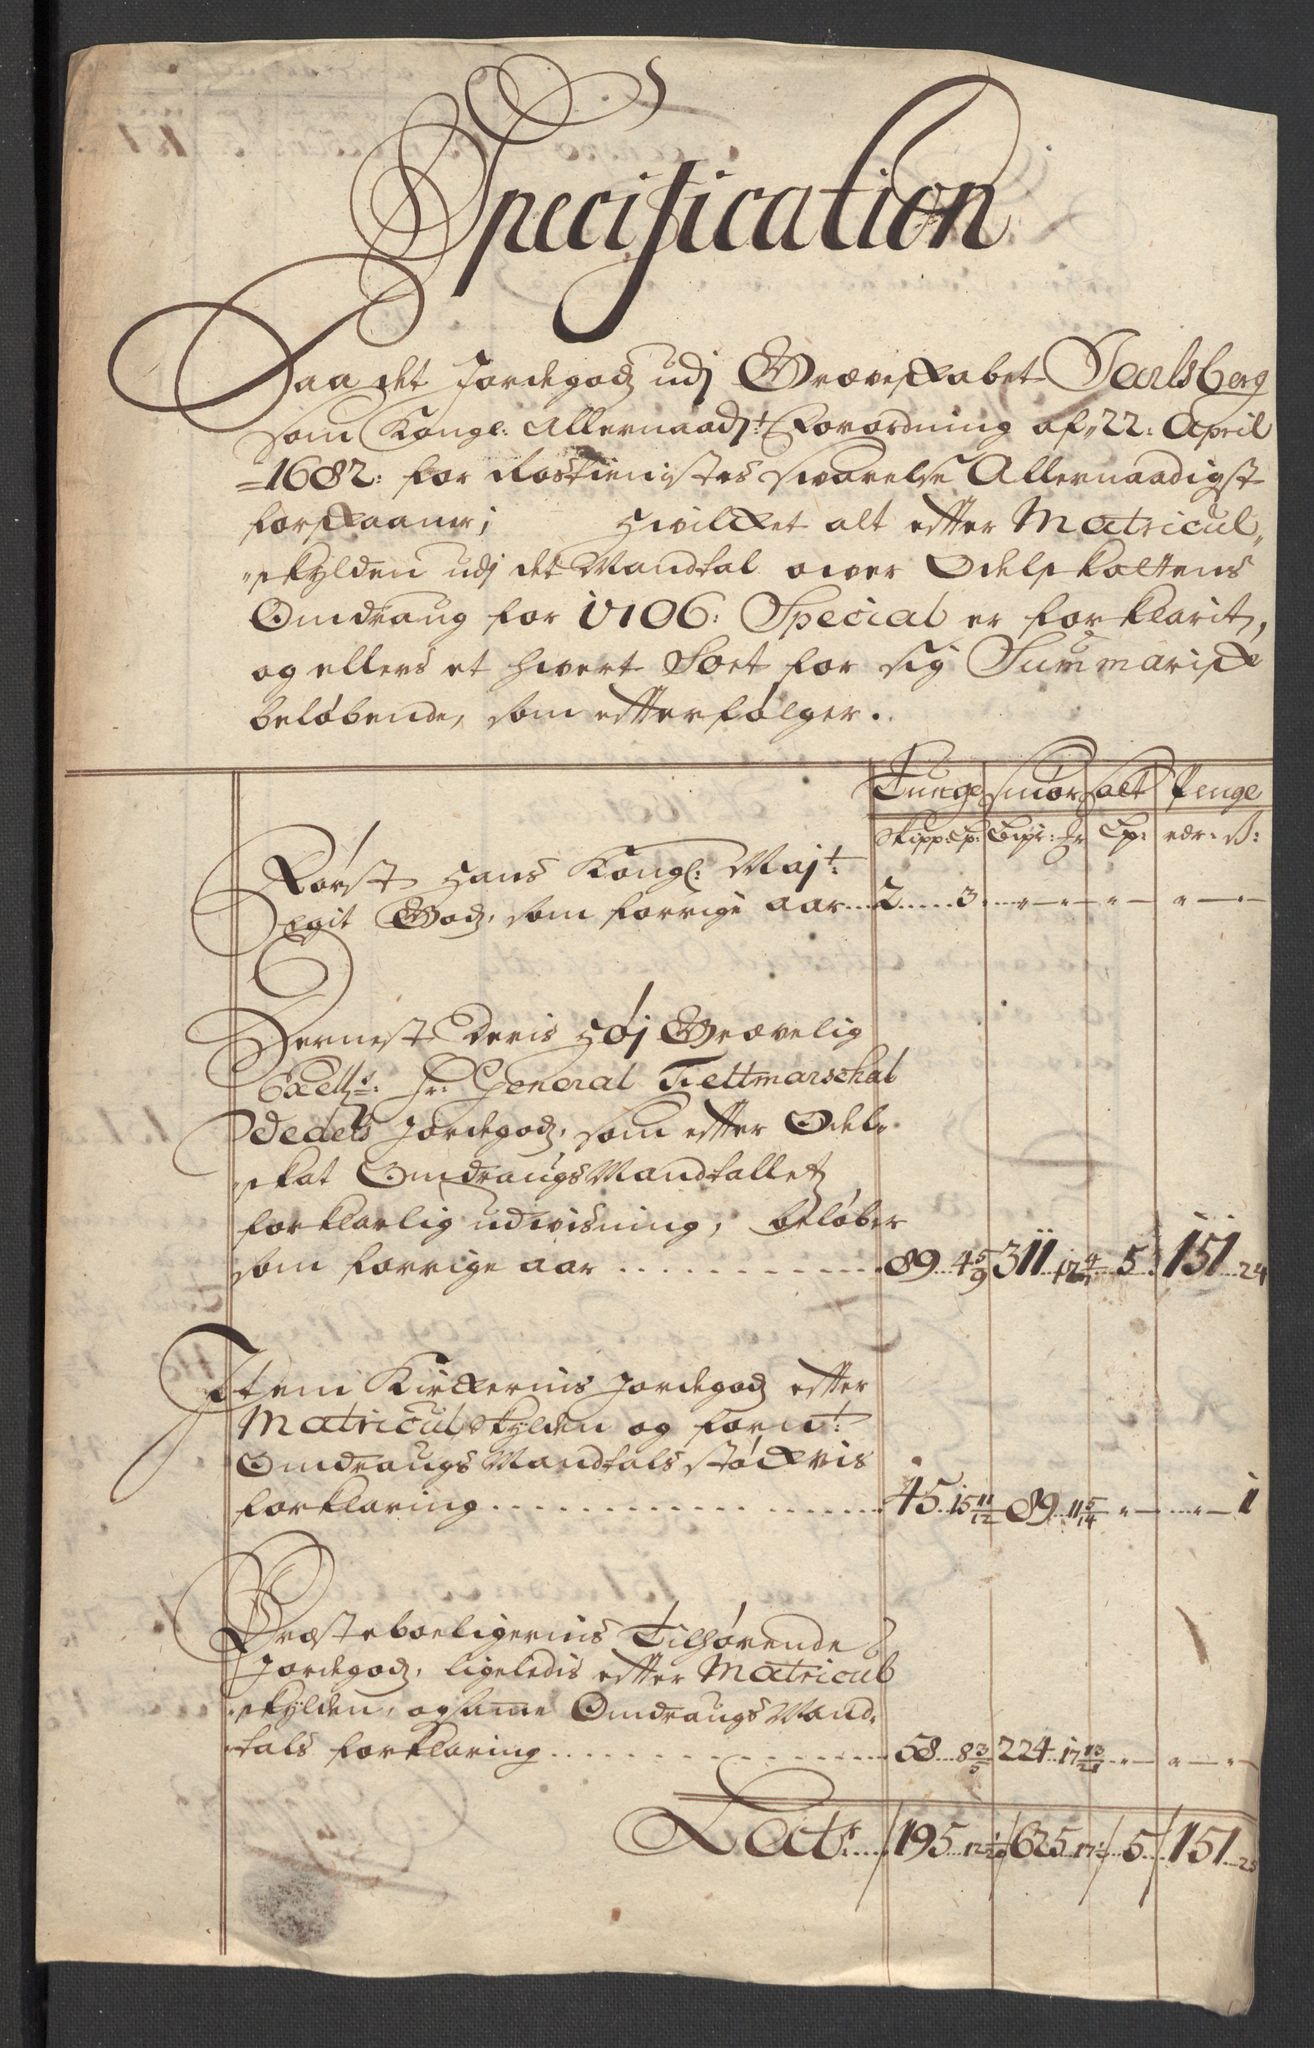 Specification
Paa det Jordegodz udj Græveskabet Jarlsberg
som Kongl: Allernaadst: Forordning af 22: April
1682: for Rostienistes swarelse Allernaadigst
forskaaner; hvilcket alt efter Matricul,,
,,skylden udj det Mandtal ower Odelskattens
Omdraug for 1706: Special er forklarit,
og ellers et hwert Soet for sig Summarisk
beløbende, som efterfølger.
Tunge Smør Salt Penge
Skipp Lp: Bpr: Mr Lp: rdr: ß:
Først Hans Kongl: Mayt:
Egit Godz, som forrige aar... 2.....3
Dernest Deris Høj Grævelig
Excellz: Hr: General Feltmarschal
Wedels Jordegodz, som efter Odel-
skat Omdraugs Mandtallet
forklarlig udwisning, beløber
som forrige aar .......... 89...4 5/9 311...17 4/7 5 151...24
Item Kirckernis Jordegodz efter
Matriculskylden og fornt:
Omdraugs Mandtals støckvis
forklaring .......... 45..15 11/12 89..11 5/14 1
Præsteboeligernis Tilhørende
Jordegodz, ligeledis efter Matricul
skylden, og samme Omdraugs Mand-
tals forklaring .......... 58...8 3/5 224..17 13/21
Latr: 195...12 625..17 5 151...25